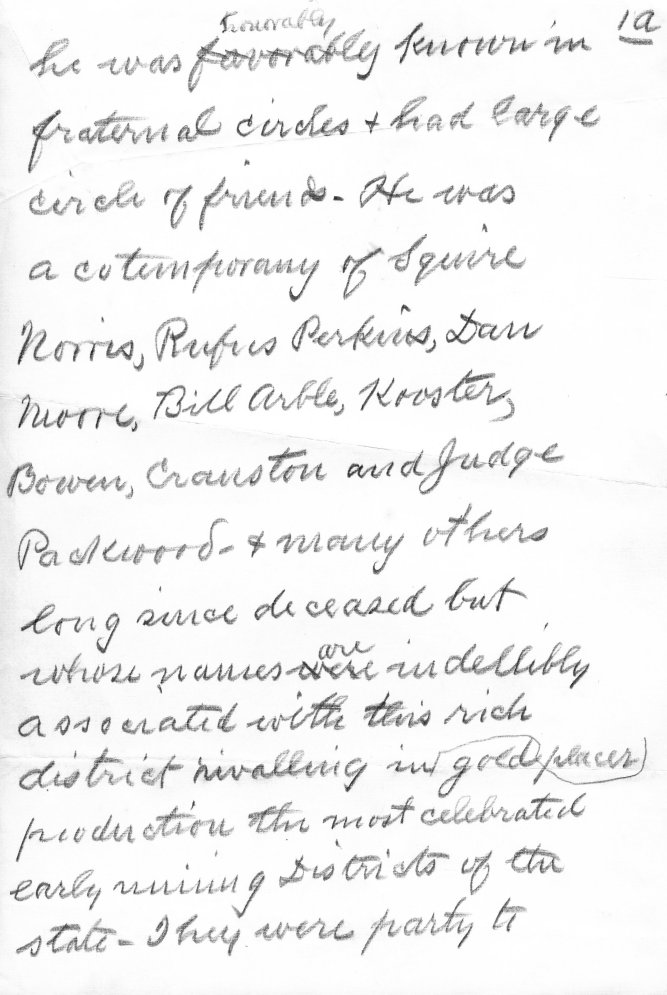 1a
honorably
he was favorably known in
fraternal circles + had large
circle of friends - He was
a cotemporary of Squire
Norris, Rufus Perkins, Dan
Moore, Bill Arble, Kooster,
Bowen, Cranston and Judge
Packwood - + many others
long since deceased but
are
whose names were indellibly
associated with this rich
district rivalling in gold placer
production the most celebrated
early mining Districts of the
state - They were party to